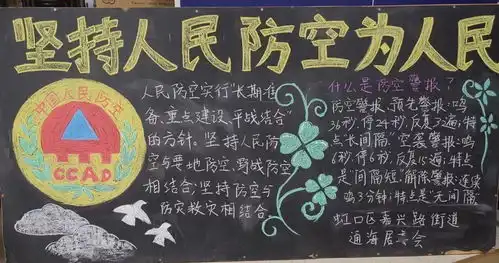 坚持人民防空为人民
中国人民防空
CCAD
人民防空实行"长期准
备、重点建设、平战结合"
的方针。坚持人民防
空与要地防空、野战防空
相结合;坚持防空与
防灾救灾相结合
什么是防空警报?
防空警报、预先警报:鸣
36秒,停24秒,反复3遍;特
点:长间隔."空袭警报:鸣
6秒,停6秒,反复15遍;特点
是间隔短."解除警报:连续
鸣3分钟;特点是:无间隔
虹口区嘉兴路街道
通海居委会